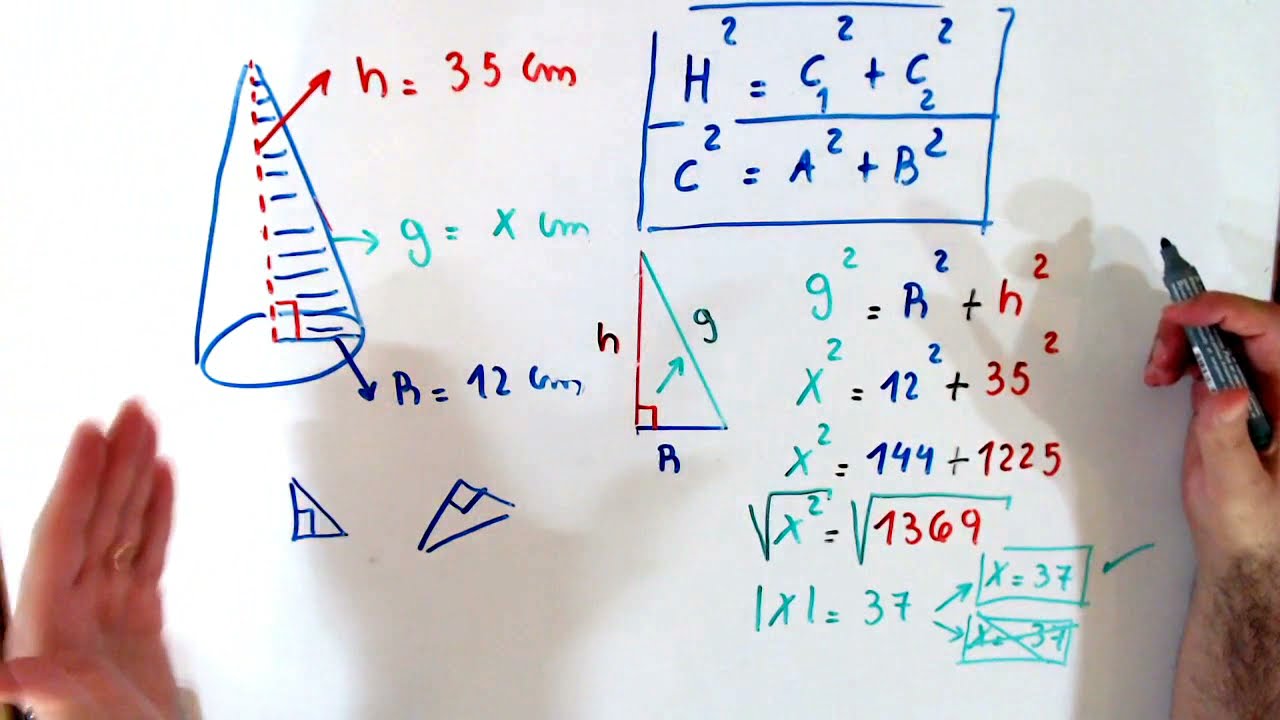 h = 35 cm
g = x cm
R = 12 cm
H² = C₁² + C₂²
C² = A² + B²
h
g
R
g² = R² + h²
x² = 12² + 35²
x² = 144 + 1225
√x² = √1369
|x| = 37
x = 37 ✓
x = -37